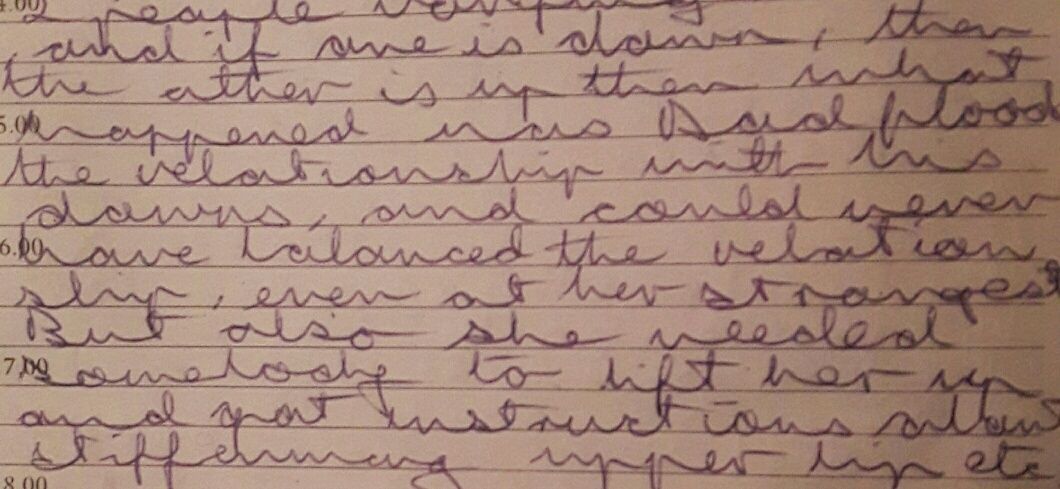 4.00 2 people
, and if one is down, then
the other is up then what
5.00 happened was Dad flood
the relationship with his
downs, and could never
6.00 have balanced the relation
ship, even at her strongest
But also she needed
7.00 somebody to lift her up
and got instructions about
stiffening upper lip etc
8.00